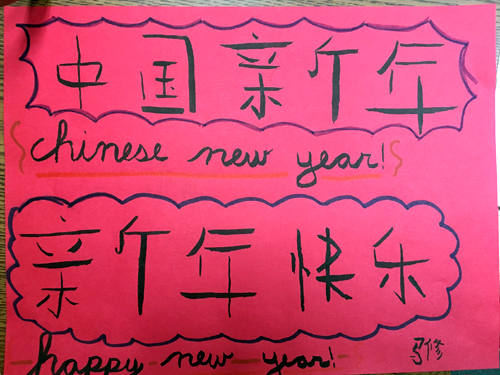 中国新年
chinese new year!
新年快乐
happy new year!
马修